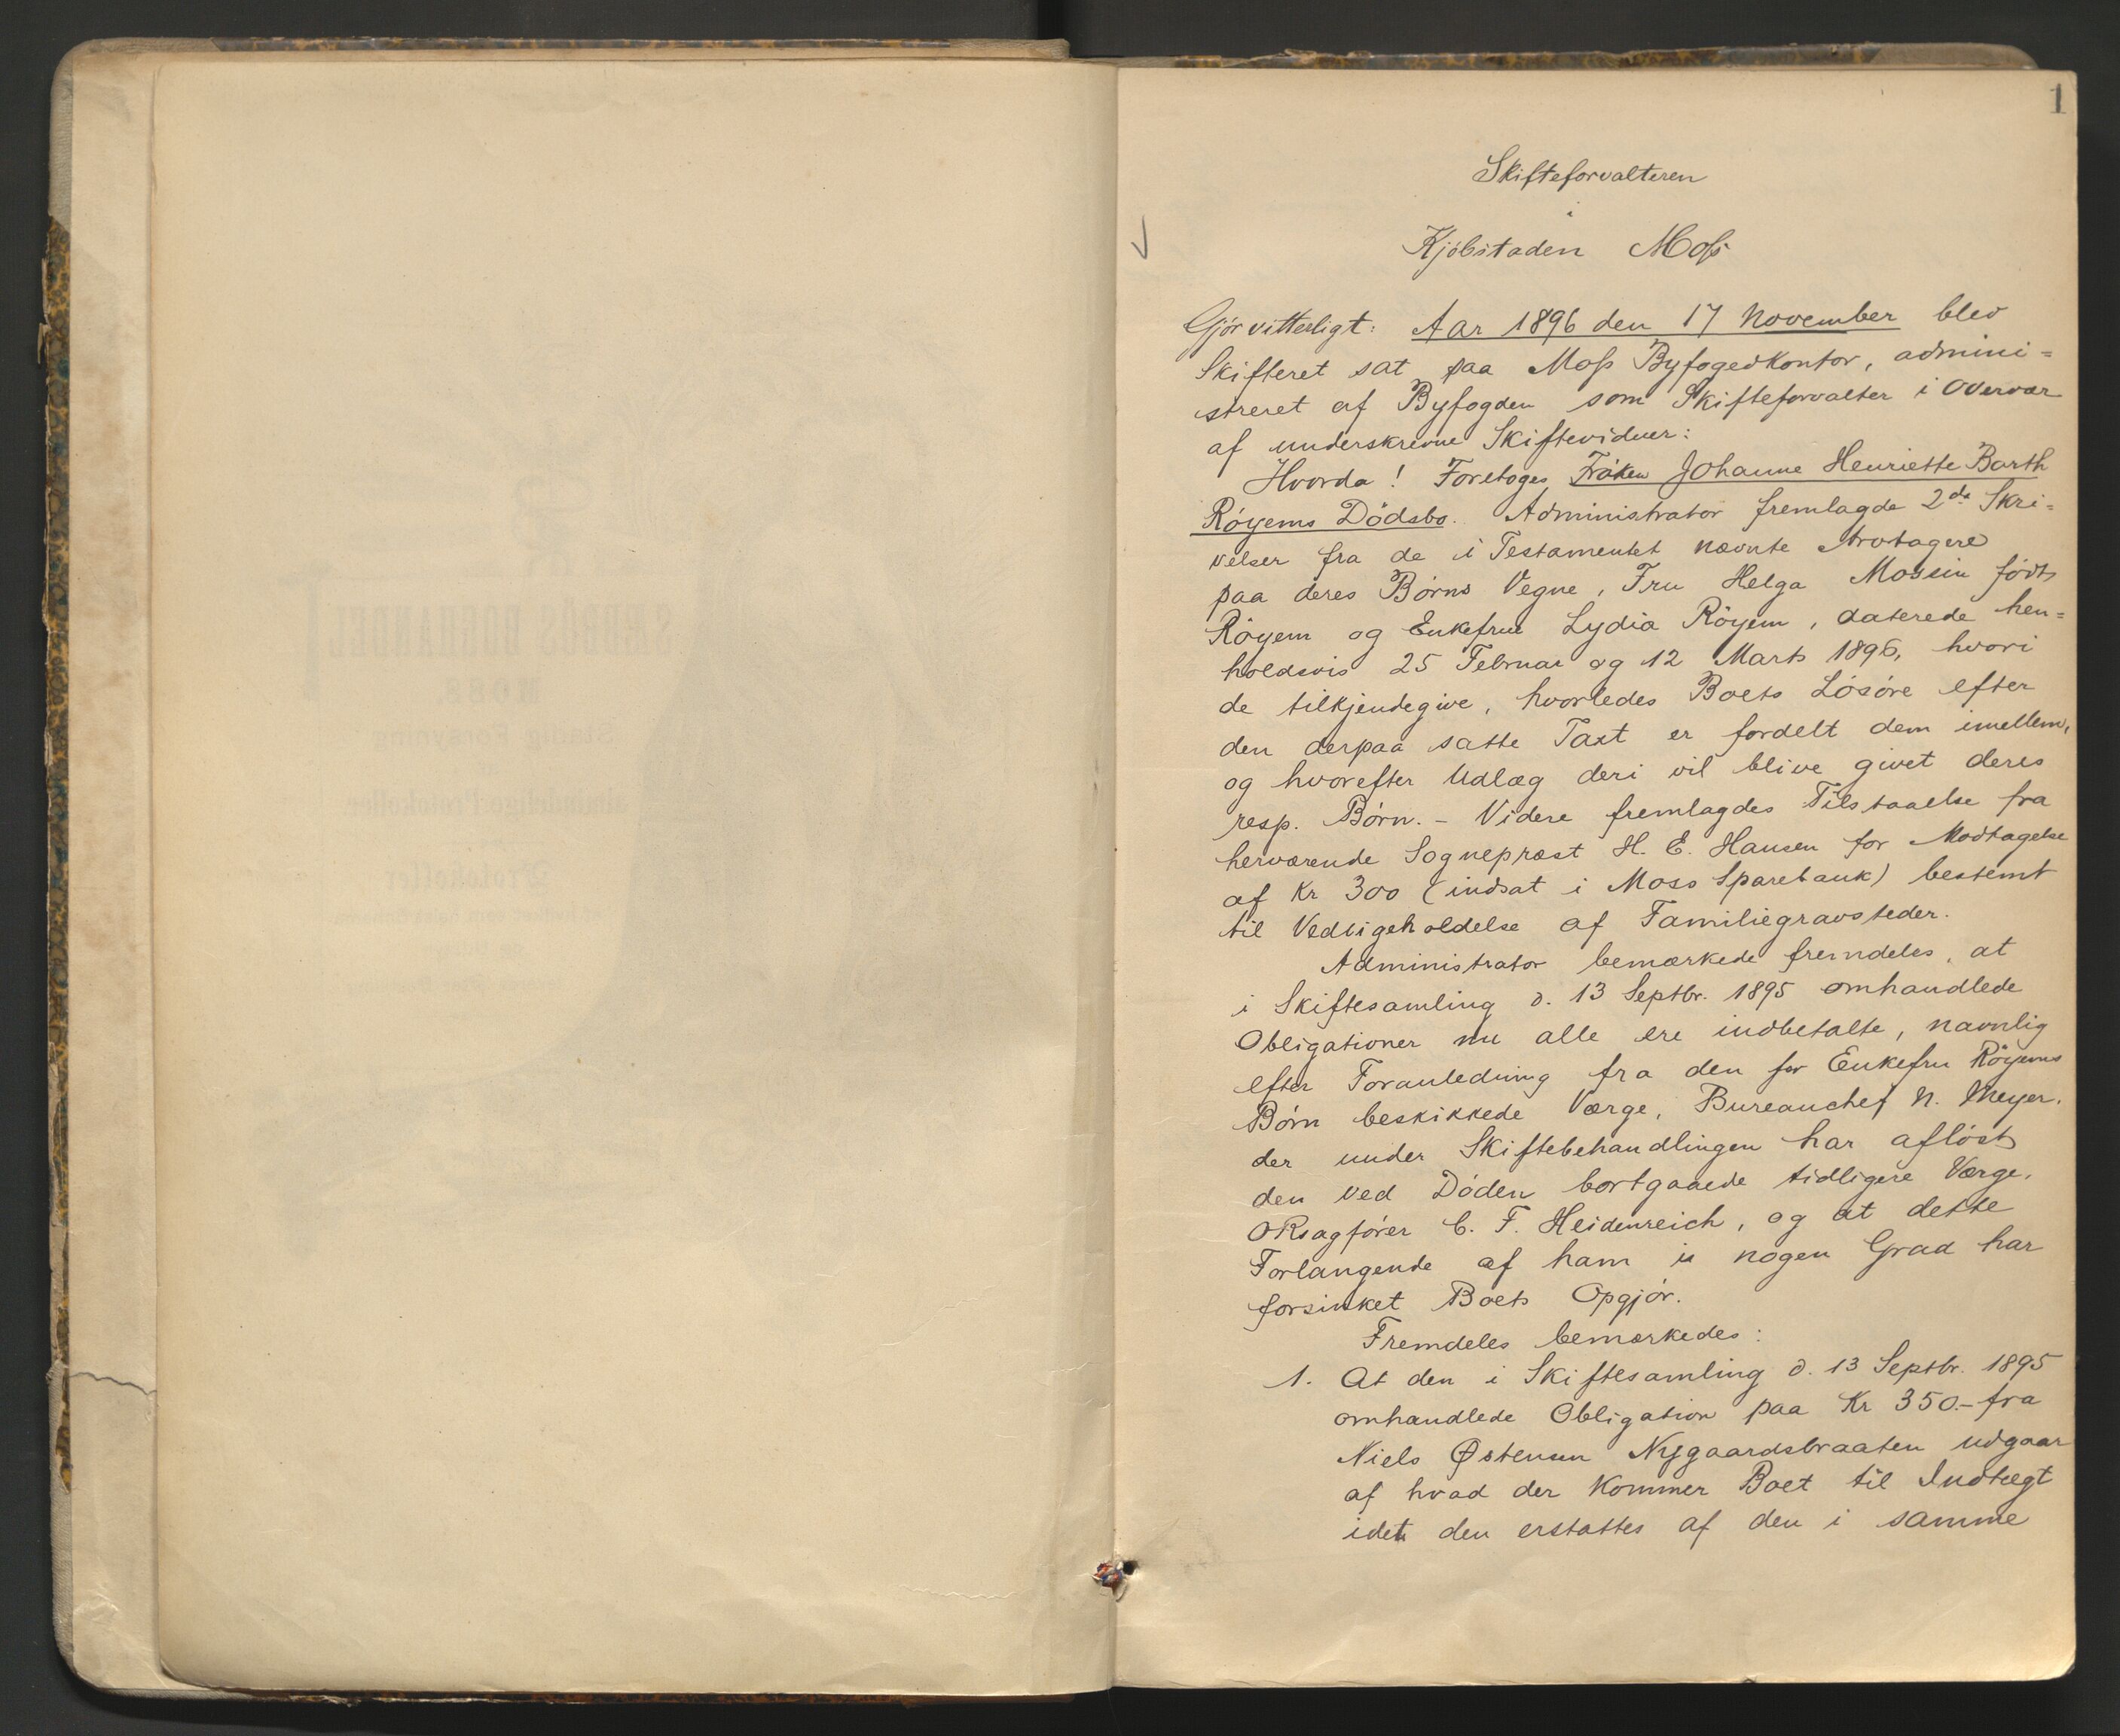 1
Skifteforvalteren
i
Kjöbstaden Moss
Gjör vitterligt: Aar 1896 den 17 November blev
Skifteret sat paa Moss Byfogedkontor, admini=
streret af Byfogden som Skifteforvalter i Overvær
af underskrevne Skiftevidner:
Hvorda! Foretoges Fröken Johanne Henriette Barth
Röyems Dödsbo. Administrator fremlagde 2de Skri=
velser fra de i Testamentet nævnte Arvtagere
paa deres Börns Vegne, Fru Helga Mossin födt
Röyem og Enkefrue Lydia Röyem, daterede hen=
holdsvis 25 Februar og 12 Marts 1896, hvori
de tilkjendegive, hvorledes Boets Lösöre efter
den derpaa satte Taxt er fordelt dem imellem,
og hvorefter Udlæg deri vil blive givet deres
resp. Börn. – Videre fremlagdes Tilstaaelse fra
herværende Sognepræst H. E. Hansen for Modtagelse
af Kr 300 (indsat i Moss Sparebank) bestemt
til Vedligeholdelse af Familiegravsteder.
Administrator bemærkede fremdeles, at
i Skiftesamling d. 13 Septbr. 1895 omhandlede
Obligationer nu alle ere indbetalte, navnlig
efter Foranledning fra den for Enkefru Röyems
Börn beskikkede Værge, Bureauchef N. Meyer,
der under Skiftebehandlingen har aflöst
den ved Döden bortgaaede tidligere Værge,
ORsagförer C. F. Heidenreich, og at dette
Forlangende af ham i nogen Grad har
forsinket Boets Opgjör.
Fremdeles bemærkedes:
1. At den i Skiftesamling d. 13 Septbr. 1895
omhandlede Obligation paa Kr 350.– fra
Niels Østensen Nygaardsbraaten udgaar
af hvad der kommer Boet til Indtægt
idet den erstattes af den i samme